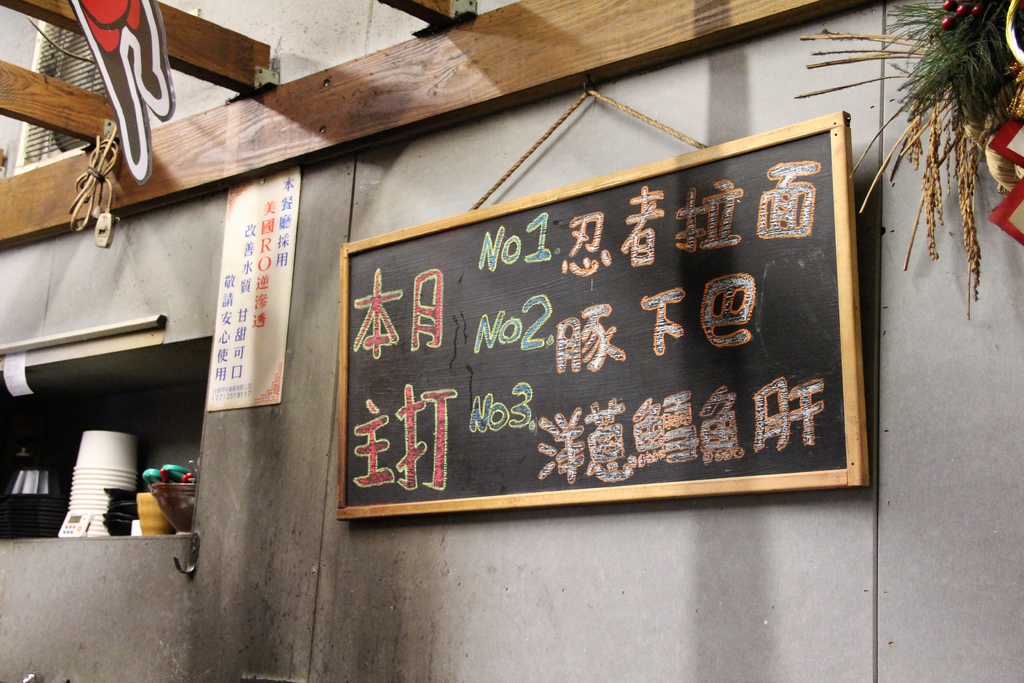 本餐廳採用
美國RO逆滲透
改善水質 甘甜可口
敬請安心使用
本月
主打
No1. 忍者拉面
No2. 豚下巴
No3. 洋蔥鱈魚肝